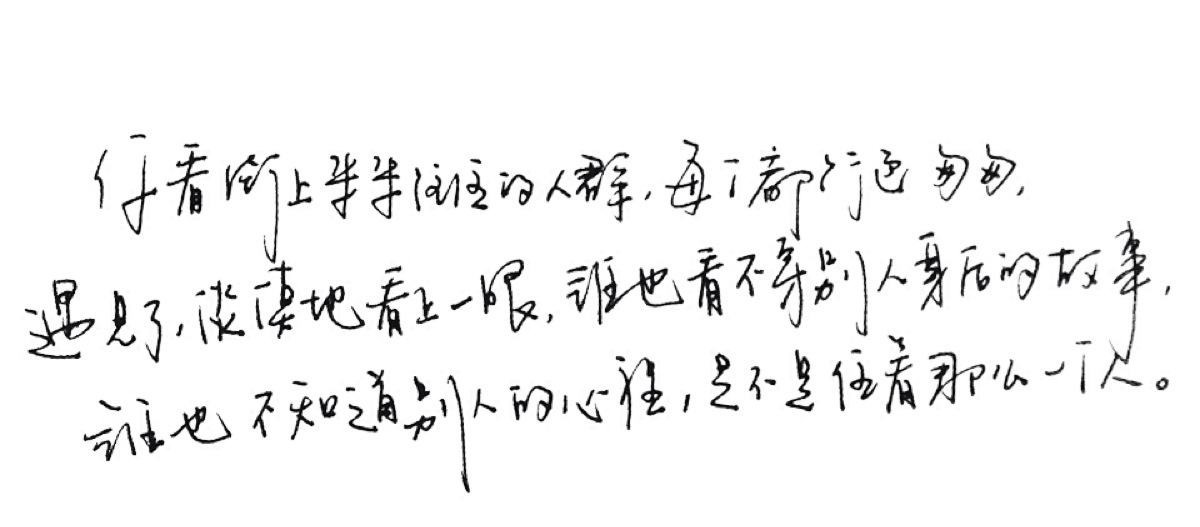 仔看街上来来往往的人群,每个都行色匆匆,
遇见了,淡漠地看上一眼,谁也看不穿别人身后的故事,
谁也不知道别人的心裡,是不是住着那么一个人。